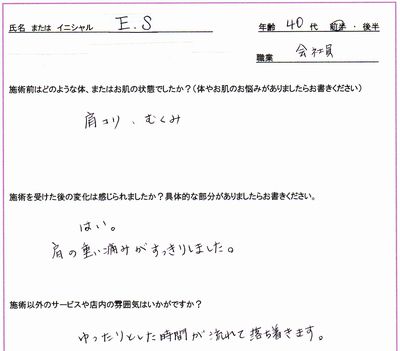 氏名 または イニシャル E.S 年齢 40 代 前半 ・ 後半
職業 会社員
施術前はどのような体、またはお肌の状態でしたか？（体やお肌のお悩みがありましたらお書きください）
肩コリ、むくみ
施術を受けた後の変化は感じられましたか？具体的な部分がありましたらお書きください。
はい。
肩の重い痛みがすっきりしました。
施術以外のサービスや店内の雰囲気はいかがですか？
ゆったりとした時間が流れて落ち着きます。